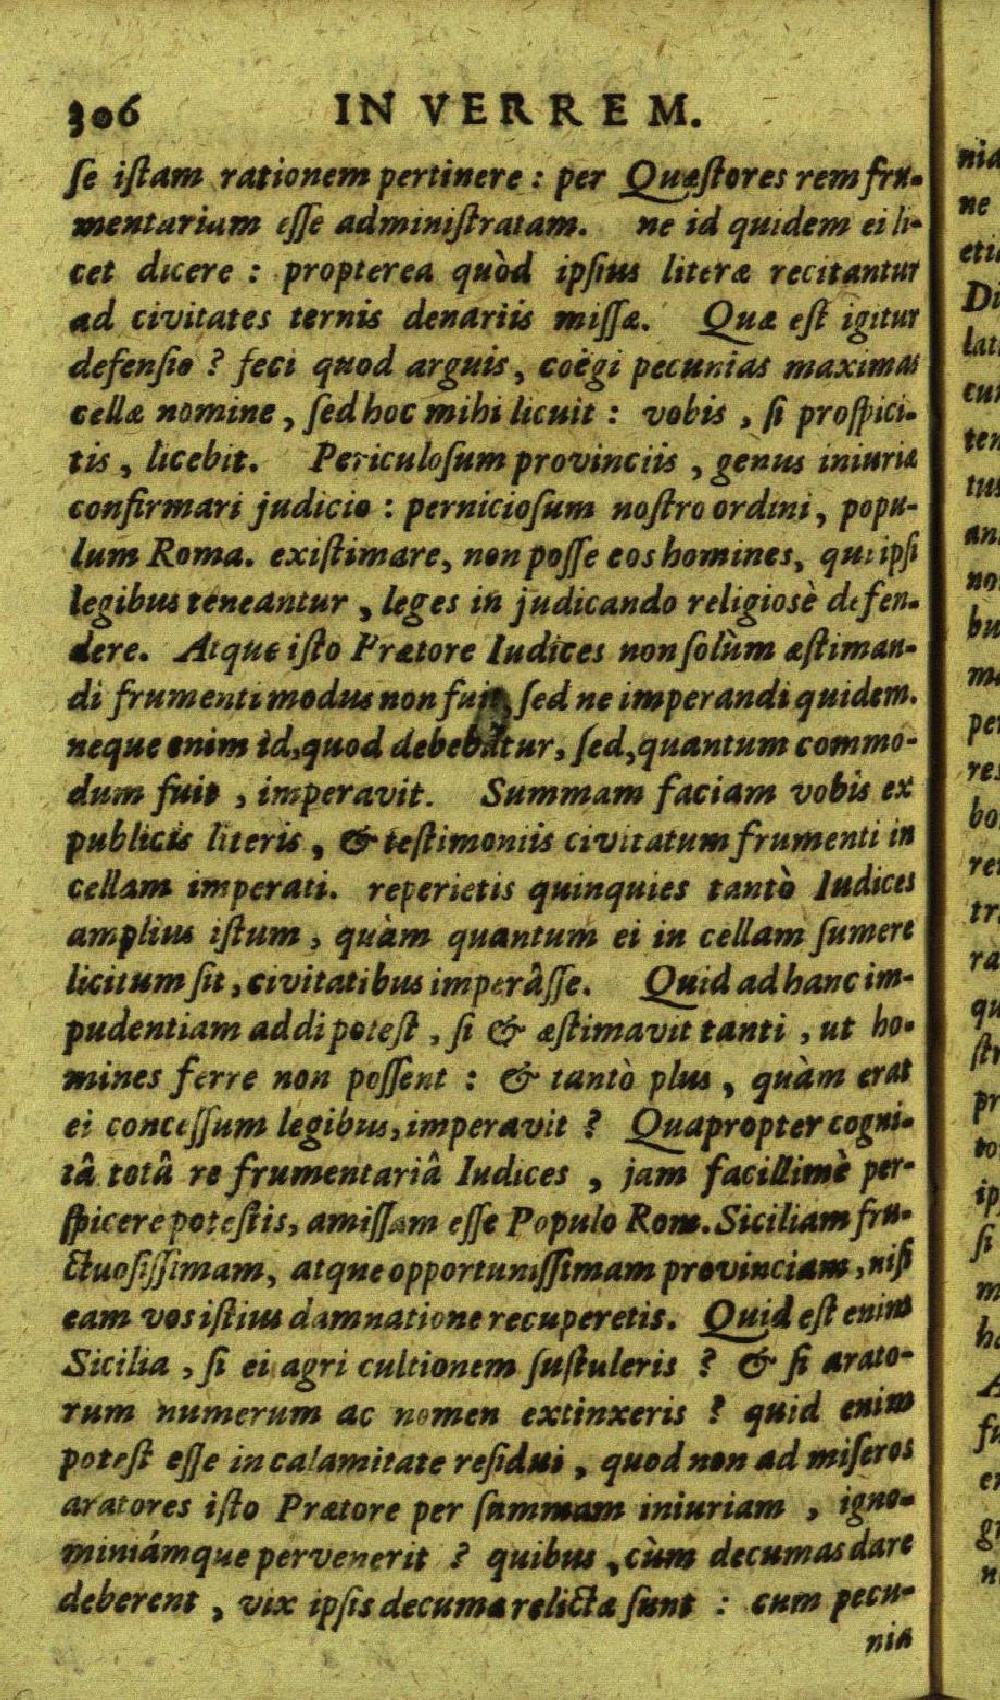 306 IN VERREM.
ſe iſtam rationem pertinere : per Quæſtores rem fru-
mentariam eſſe adminiſtratam. ne id quidem ei li-
cet dicere : propterea quòd ipſius literæ recitantur
ad civitates ternis denariis miſſæ. Quæ eſt igitur
defenſio ? feci quod arguis, coëgi pecunias maximas
cellæ nomine, ſed hoc mihi licuit : vobis, ſi proſpici-
tis, licebit. Periculoſum provinciis, genus iniuriæ
confirmari judicio : pernicioſum noſtro ordini, popu-
lum Roma. exiſtimare, non poſſe eos homines, qui ipſi
legibus teneantur, leges in judicando religiosè defen-
dere. Atque iſto Prætore Iudices non ſolùm æſtiman-
di frumenti modus non fuit, ſed ne imperandi quidem.
neque enim id, quod debebatur, ſed, quantum commo-
dum fuit, imperavit. Summam faciam vobis ex
publicis literis, & teſtimoniis civitatum frumenti in
cellam imperati. reperietis quinquies tantò Iudices
amplius iſtum, quàm quantum ei in cellam ſumere
licitum ſit, civitatibus imperâſſe. Quid ad hanc im-
pudentiam addi poteſt, ſi & æſtimavit tanti, ut ho-
mines ferre non poſſent : & tantò plus, quàm erat
ei conceſſum legibus, imperavit ? Quapropter cogni-
tâ totâ re frumentariâ Iudices, jam facillimè per-
ſpicere poteſtis, amiſſam eſſe Populo Rom. Siciliam fru-
ctuoſiſſimam, atque opportuniſſimam provinciam, niſi
eam vos iſtius damnatione recuperetis. Quid eſt enim
Sicilia, ſi ei agri cultionem ſuſtuleris ? & ſi arato-
rum numerum ac nomen extinxeris ? quid enim
poteſt eſſe in calamitate reſidui, quod non ad miſeros
aratores iſto Prætore per ſummam iniuriam, igno-
miniámque pervenerit ? quibus, cùm decumas dare
deberent, vix ipſis decumæ relictæ ſunt : cum pecu-
nia